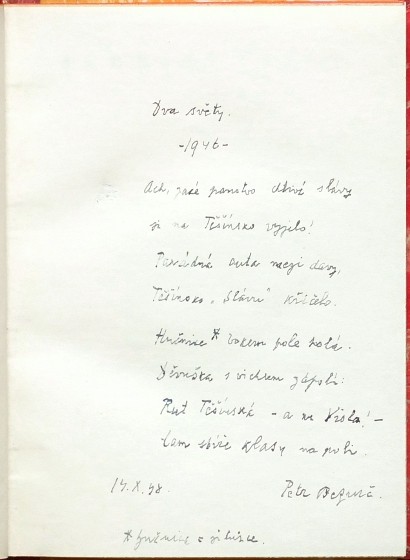 Dva světy.
-1946-
Ach, jaké panstvo dávné slávy
si na Těšínsko vyjelo!
Parádná auta mezi davy,
Těšínsko „Slávu" křičelo.
Hučnice * bokem pole kolá.
Děvuška s vichrem zápolí:
Rut Těšínská – a ne Viola! –
tam sbírá klasy na poli.
14.X.48. Petr Bezruč.
* hučnice = silnice.